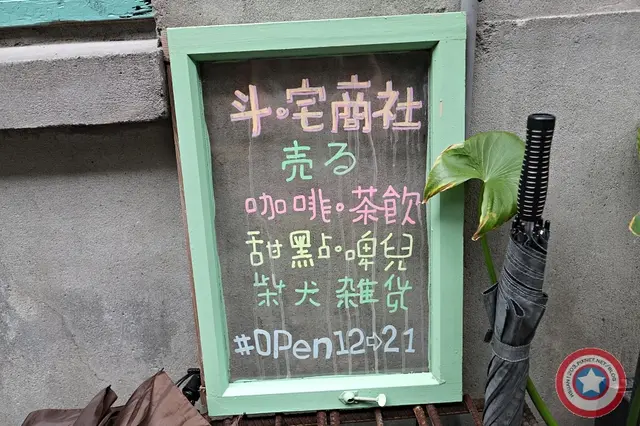 斗。宅商社
売る
咖啡。茶飲
甜點。啤兒
柴犬 雜貨
#OPen12⇨21